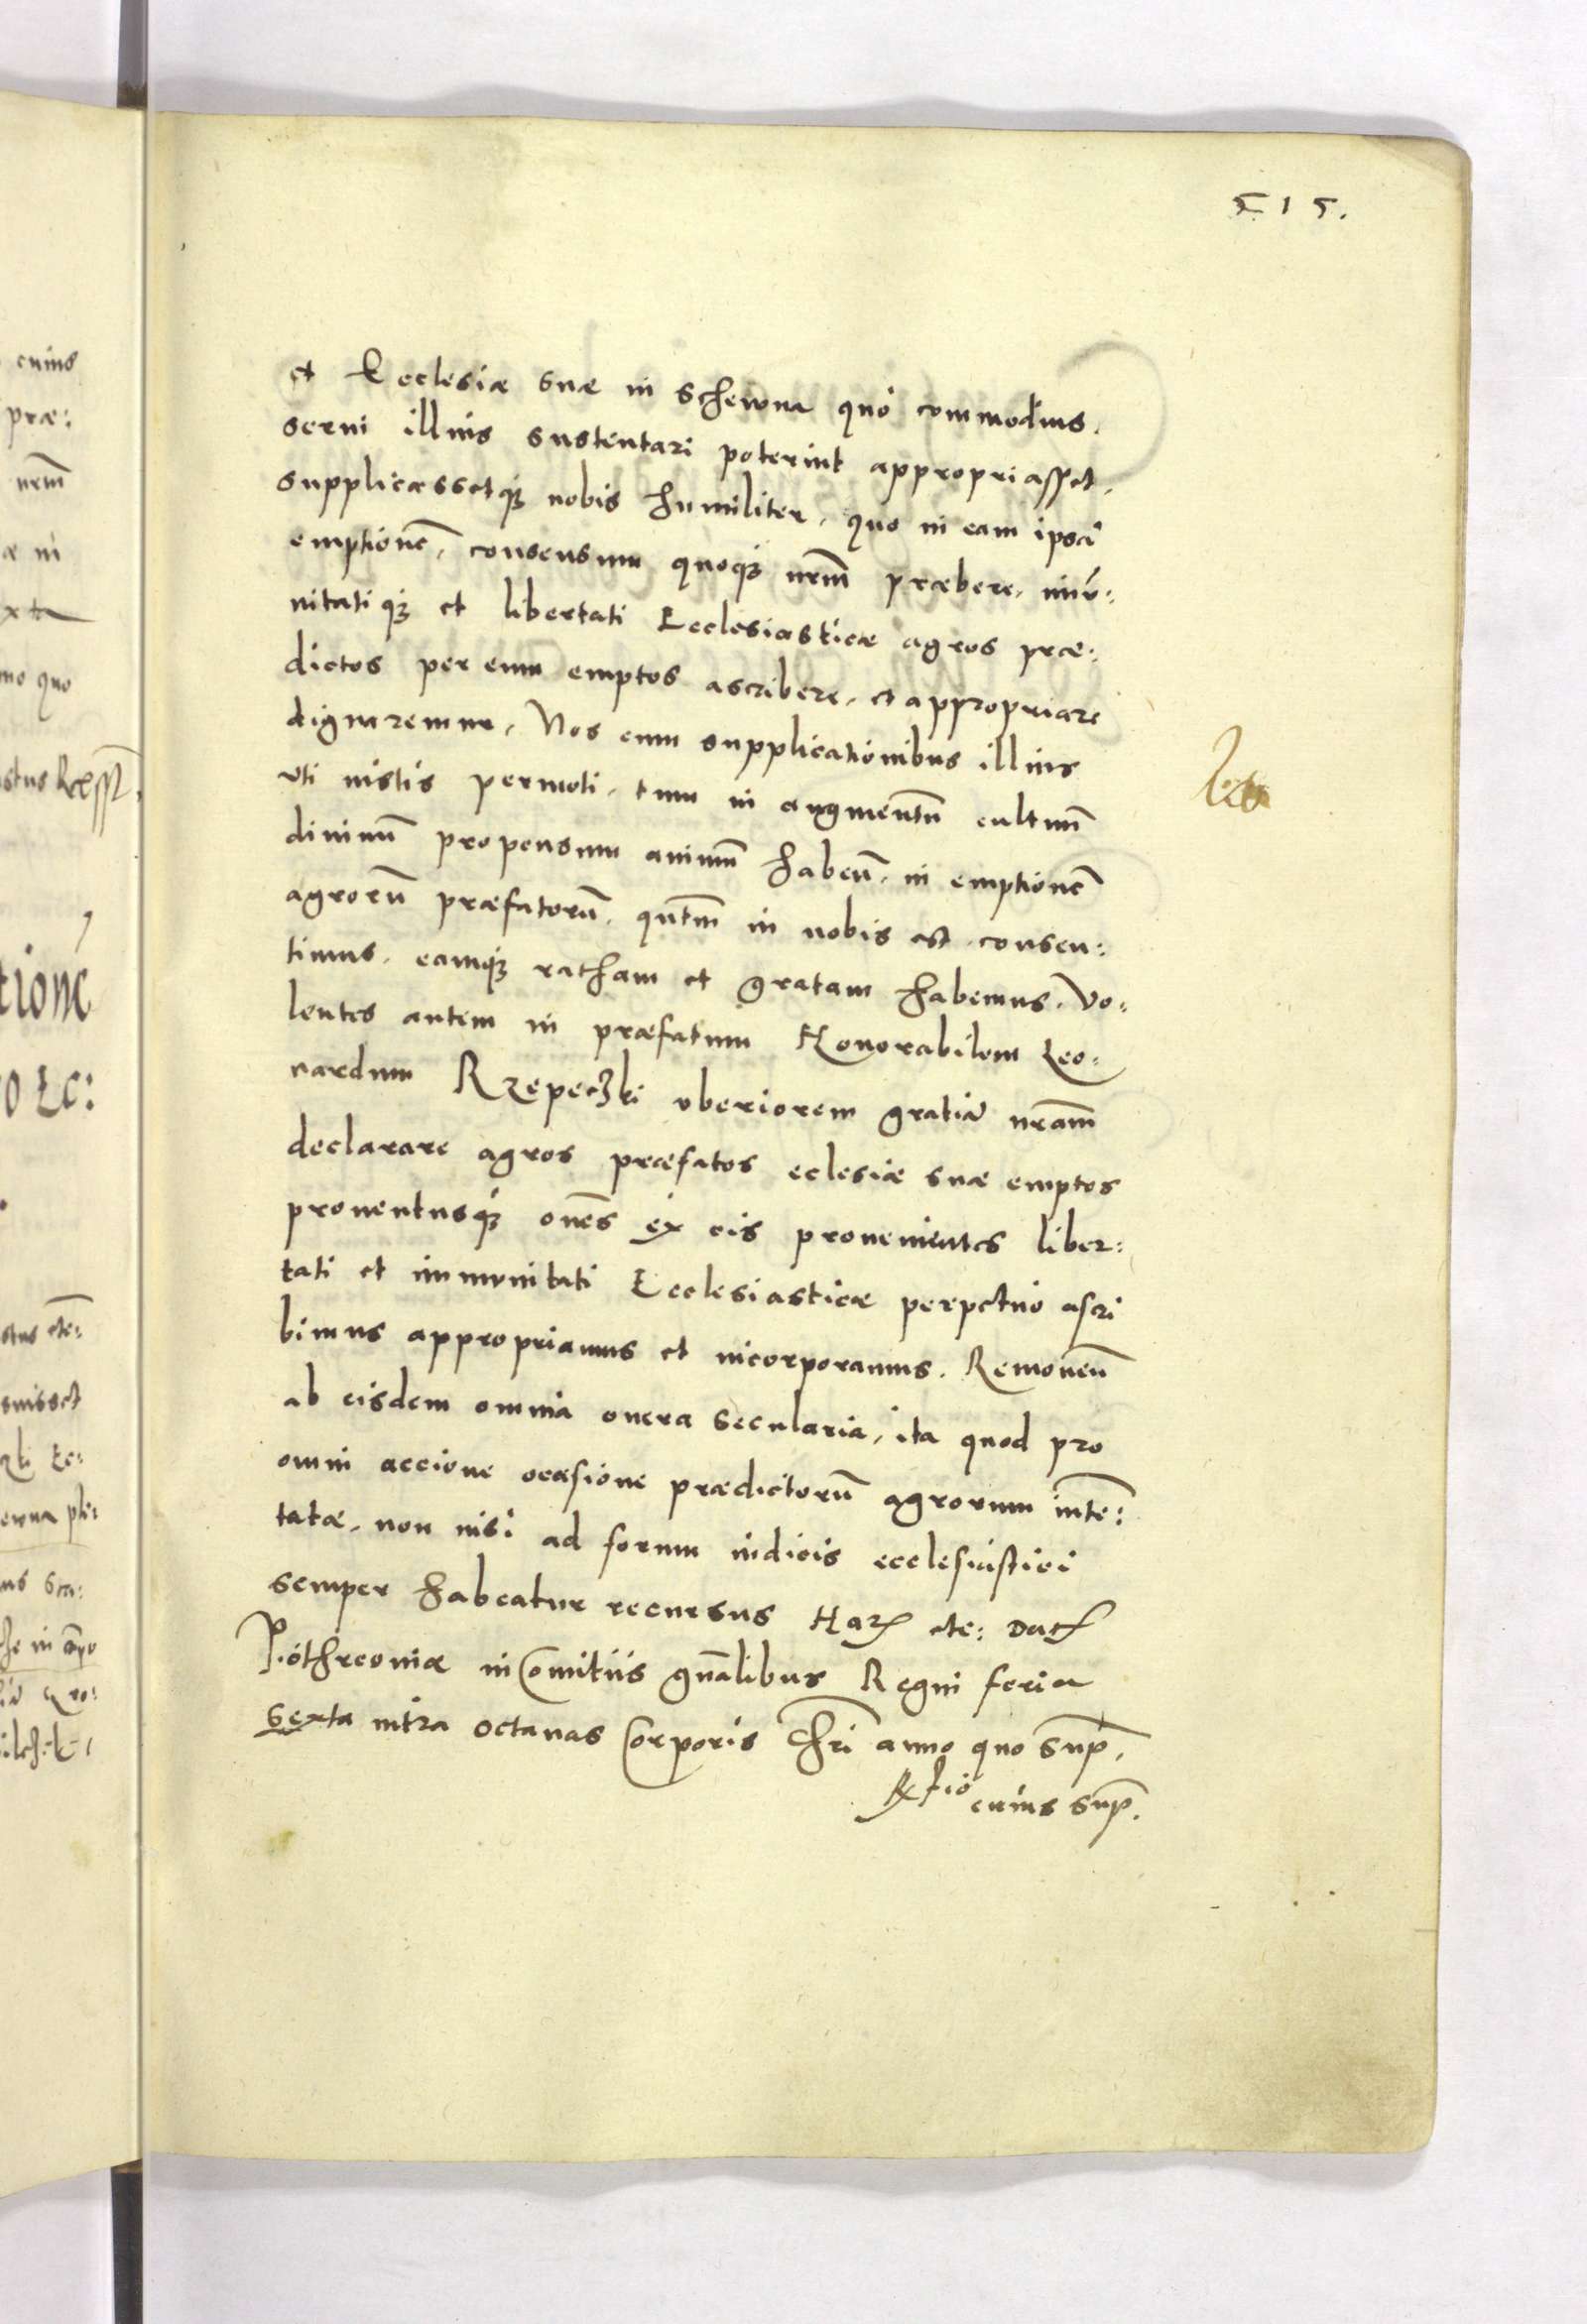 515.
et Ecclesiæ suæ in Schewna quó commodius.
serui illius sustentari poterint appropriasset,
supplicassetqȝ nobis humiliter, quo in eam ipsā
emptionē, consensum quoqȝ nr̄m præbere, imū:
nitatiqȝ et libertati Ecclesiasticæ agros præ:
dictos per eum emptos ascribere, et appropriare
dignaremur. Nos cum supplicationibus illius
vti iustis permoti, tum in augmentū cultum
diuinū propensum animū habeñ, in emptionē
agrorū præfatorū, quntm̄ in nobis est, consen:
timus, eamqȝ ratham et gratam habemus. Vo:
lentes autem in præfatum Honorabilem Leo:
nardum Rzepeczki vberiorem gratiā nr̄am
declarare agros præfatos eclesiæ suæ emptos
prouentusqȝ om̄es ex eis prouenientes liber:
tati et immunitati Ecclesiasticæ perpetuó ascri
bimus appropriamus et incorporamus. Remoueñ
ab eisdem omnia onera secularia, ita quod pro
omni accione ocasione prædictorū agrorum inten̄:
tatæ, non nisi ad forum iudicis ecclesiastici
semper habeatur recursus Harz etc: Dat
Piothrcouiæ in Comitiis gn̄alibus Regni feria
sexta intra octauas Corporis Chr̄i anno quo sup̄.
Rx̄tio cuius sup̄.